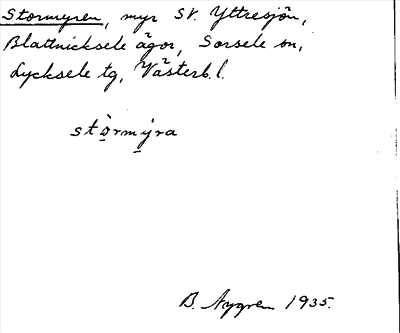 Stormyren, myr SV. Yttresjön,
Blattnicksele ägor, Sorsele sn,
Lycksele tg, Västerb. l.
stòrmýra
B. Nygren 1935.